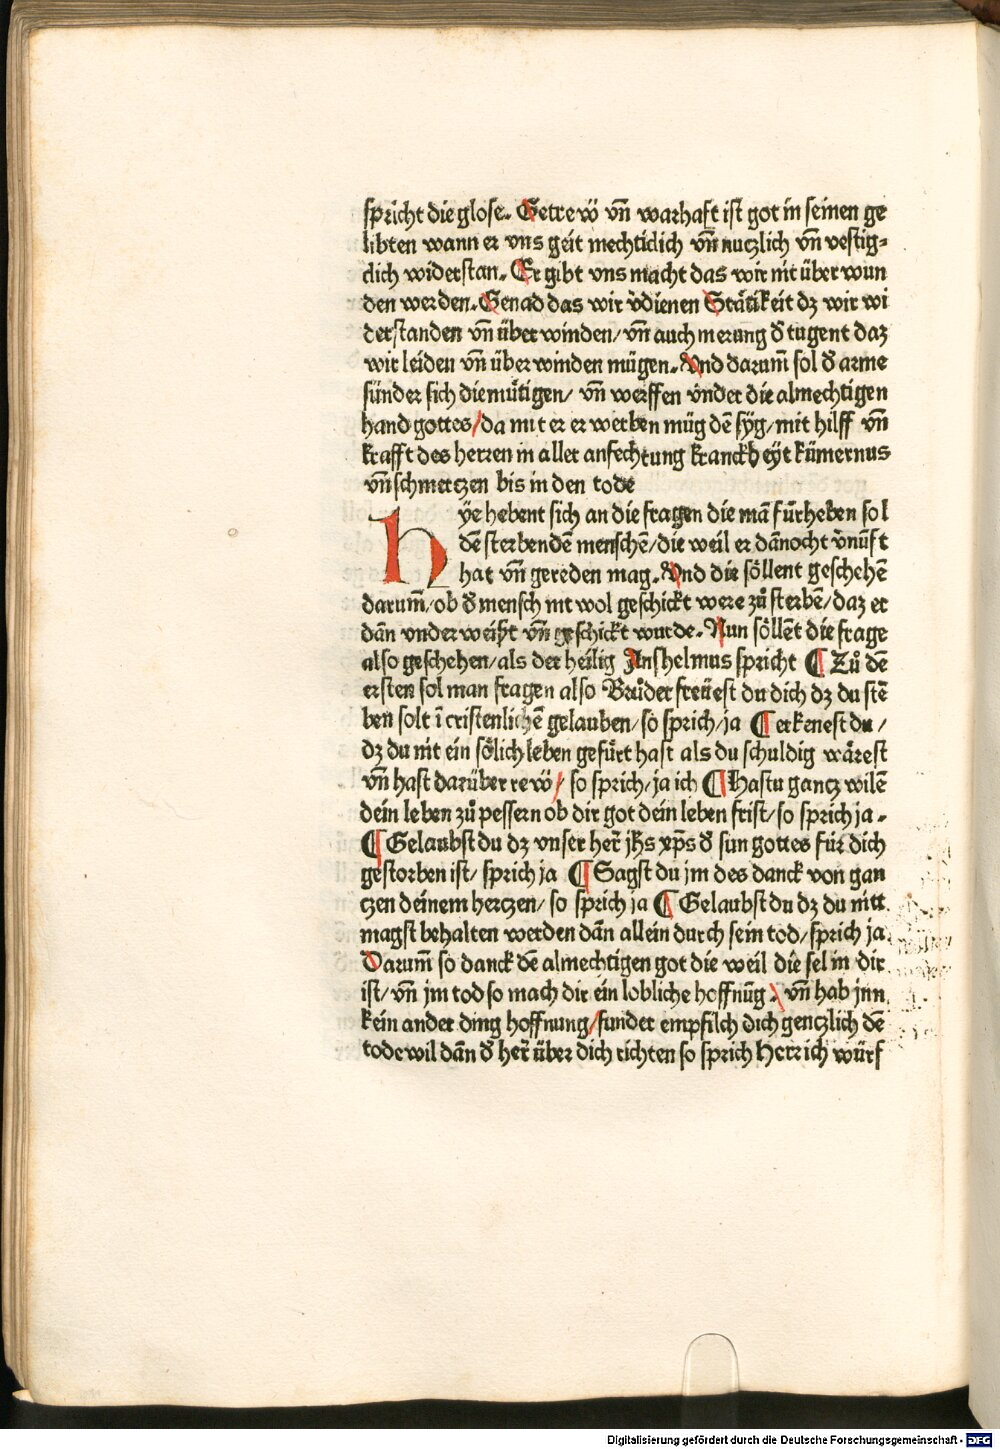 spricht die glose. Getrew̎ vn̄ warhaft ist got in seinen ge
libten wann er vns geit mechtidich vn̄ nuczlich vn̄ vestig⸗
dich widerstan. Er gibt vns macht das wir nit über wun
den werden. Genad das wir v̄dienen Stätikeit dz wir wi
derstanden vn̄ über winden/ vn̄ auch merung d̄ tugent daz
wir leiden vn̄ über winden mügen. Vnd darum̄ sol d̄ arme
sünder sich diemu̎tigen/ vn̄ werffen vnder die almechtigen
hand gottes/ da mit er er werben müg dē syg/ mit hilff vn̄
krafft des herzen in aller anfechtung kranckheyt kümernus
vn̄ schmerczen bis in den tode
hÿe hebent sich an die fragen die mā fürheben sol
dē sterbendē menschē/ die weil er dānocht v̄nünft
hat vn̄ gereden mag. Vnd die söllent geschehē
darum̄/ ob d̄ mensch nit wol geschickt were zů sterbē/ daz er
dān vnder weißt vn̄ geschickt wurde. Nun söllēt die frage
also geschehen/ als der heilig Anshelmus spricht ¶ Zů dē
ersten sol man fragen also Brůder freüest du dich dz du stē
ben solt ī cristenlichē gelauben/ so sprich/ ja ¶ erkenest du/
dz du nit ein sölich leben gefürt hast als du schuldig wärest
vn̄ hast darüber rew̎/ so sprich/ ja ich ¶ Hastu gancz wilē
dein leben zů pessern ob dir got dein leben frist/ so sprich ja.
¶ Gelaubst du dz vnser her̄ jhs xp̄s d̄ sun gottes für dich
gestorben ist/ sprich ja ¶ Sagst du jm des danck von gan
czen deinem herczen/ so sprich ja ¶ Gelaubst du dz du nitt
magst behalten werden dān allein durch sein tod/ sprich ja
Darum̄ so danck dē almechtigen got die weil die sel in dir
ist/ vn̄ jm tod so mach dir ein lobliche hoffnūg. vn̄ hab jnn
kein ander ding hoffnung/ sunder empfilch dich genczlich dē
tode wil dān d̄ her̄ über dich richten so sprich Herr ich würf
Digitalisierung gefördert durch die Deutsche Forschungsgemeinschaft - DFG